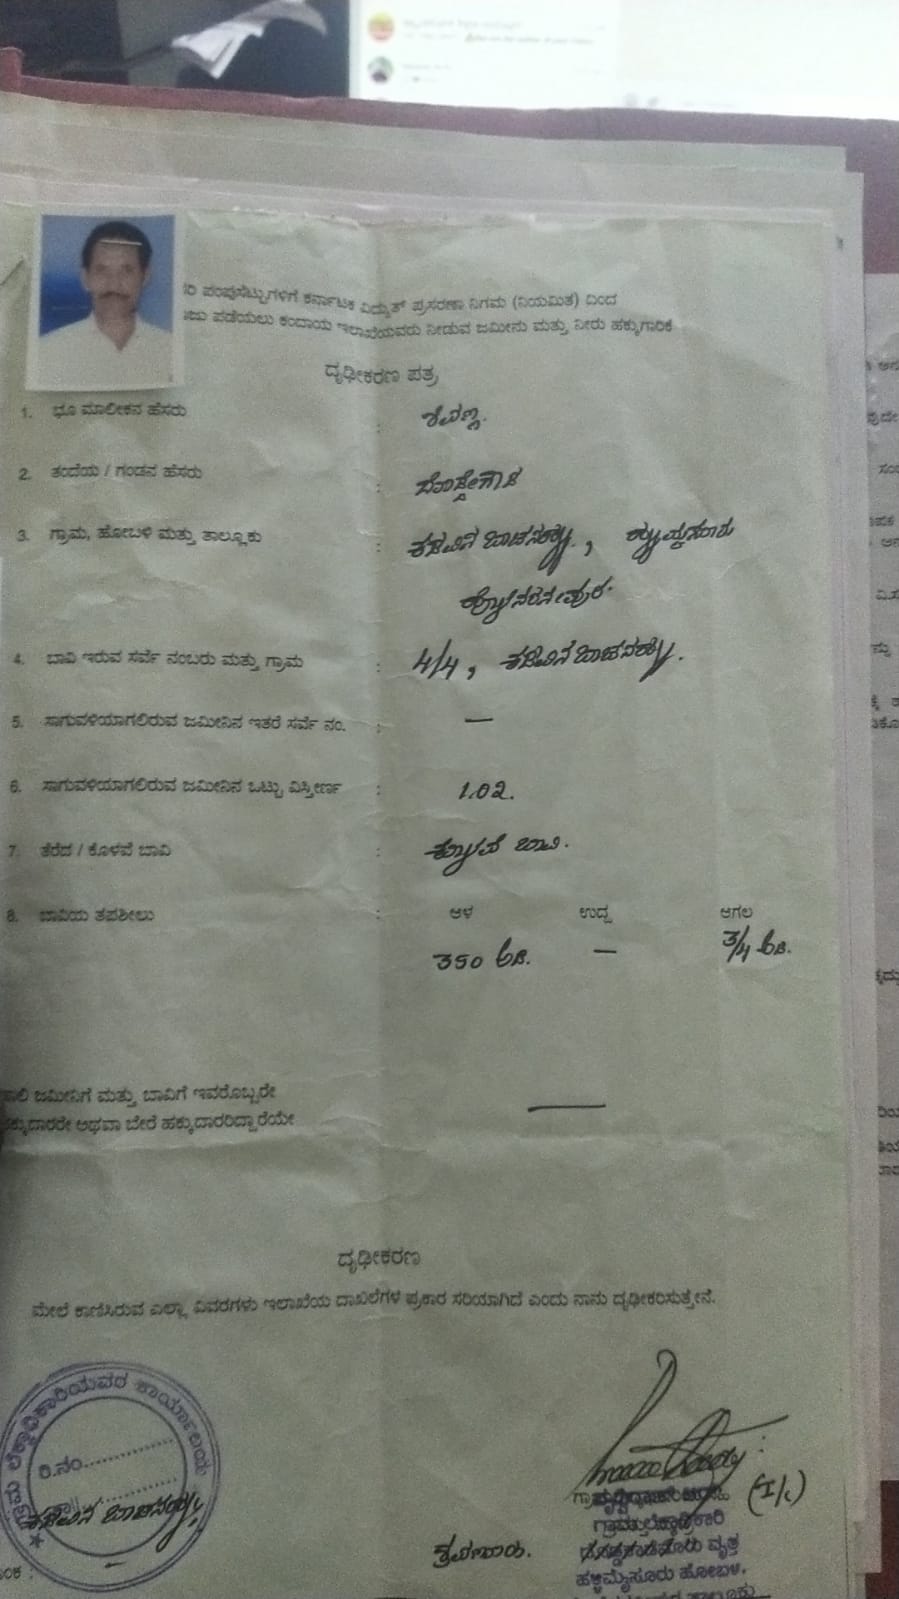 ಪಂಪುಸೆಟ್ಟುಗಳಿಗೆ ಕರ್ನಾಟಕ ವಿದ್ಯುತ್ ಪ್ರಸರಣಾ ನಿಗಮ (ನಿಯಮಿತ) ದಿಂದ
ಪಡೆಯಲು ಕಂದಾಯ ಇಲಾಖೆಯವರು ನೀಡುವ ಜಮೀನು ಮತ್ತು ನೀರು ಹಕ್ಕುಗಾರಿಕೆ
ದೃಢೀಕರಣ ಪತ್ರ
1. ಭೂ ಮಾಲೀಕನ ಹೆಸರು :
2. ತಂದೆಯ / ಗಂಡನ ಹೆಸರು : ಬೋಡೇಗೌಡ
3. ಗ್ರಾಮ, ಹೋಬಳಿ ಮತ್ತು ತಾಲ್ಲೂಕು : ಕಡವಿನ ಬಾಚನಹಳ್ಳಿ, ಹಳ್ಳಿಮೈಸೂರು
ಹೊಳೆನರಸೀಪುರ.
4. ಬಾವಿ ಇರುವ ಸರ್ವೆ ನಂಬರು ಮತ್ತು ಗ್ರಾಮ : 4/4, ಕಡವಿನ ಬಾಚನಹಳ್ಳಿ.
5. ಸಾಗುವಳಿಯಾಗಲಿರುವ ಜಮೀನಿನ ಇತರೆ ಸರ್ವೆ ನಂ. : —
6. ಸಾಗುವಳಿಯಾಗಲಿರುವ ಜಮೀನಿನ ಒಟ್ಟು ವಿಸ್ತೀರ್ಣ : 1.02.
7. ತೆರೆದ / ಕೊಳವೆ ಬಾವಿ : ಕೊಳವೆ ಬಾವಿ.
8. ಬಾವಿಯ ತಪಶೀಲು : ಆಳ ಉದ್ದ ಆಗಲ
350 ಅಡಿ. — 3/4 ಅಡಿ.
ಜಮೀನಿಗೆ ಮತ್ತು ಬಾವಿಗೆ ಇವರೊಬ್ಬರೇ
ಅಥವಾ ಬೇರೆ ಹಕ್ಕುದಾರರಿದ್ದಾರೆಯೇ —
ದೃಢೀಕರಣ
ಮೇಲೆ ಕಾಣಿಸಿರುವ ಎಲ್ಲಾ ವಿವರಗಳು ಇಲಾಖೆಯ ದಾಖಲೆಗಳ ಪ್ರಕಾರ ಸರಿಯಾಗಿದೆ ಎಂದು ನಾನು ದೃಢೀಕರಿಸುತ್ತೇನೆ.
ಲೆಕ್ಕಾಧಿಕಾರಿಯವರ ಕಾರ್ಯಾಲಯ
ರಿ.ನಂ
ಕಡವಿನ ಬಾಚನಹಳ್ಳಿ
(I/c)
ವೃತ್ತ
ಹಳ್ಳಿಮೈಸೂರು ಹೋಬಳಿ,